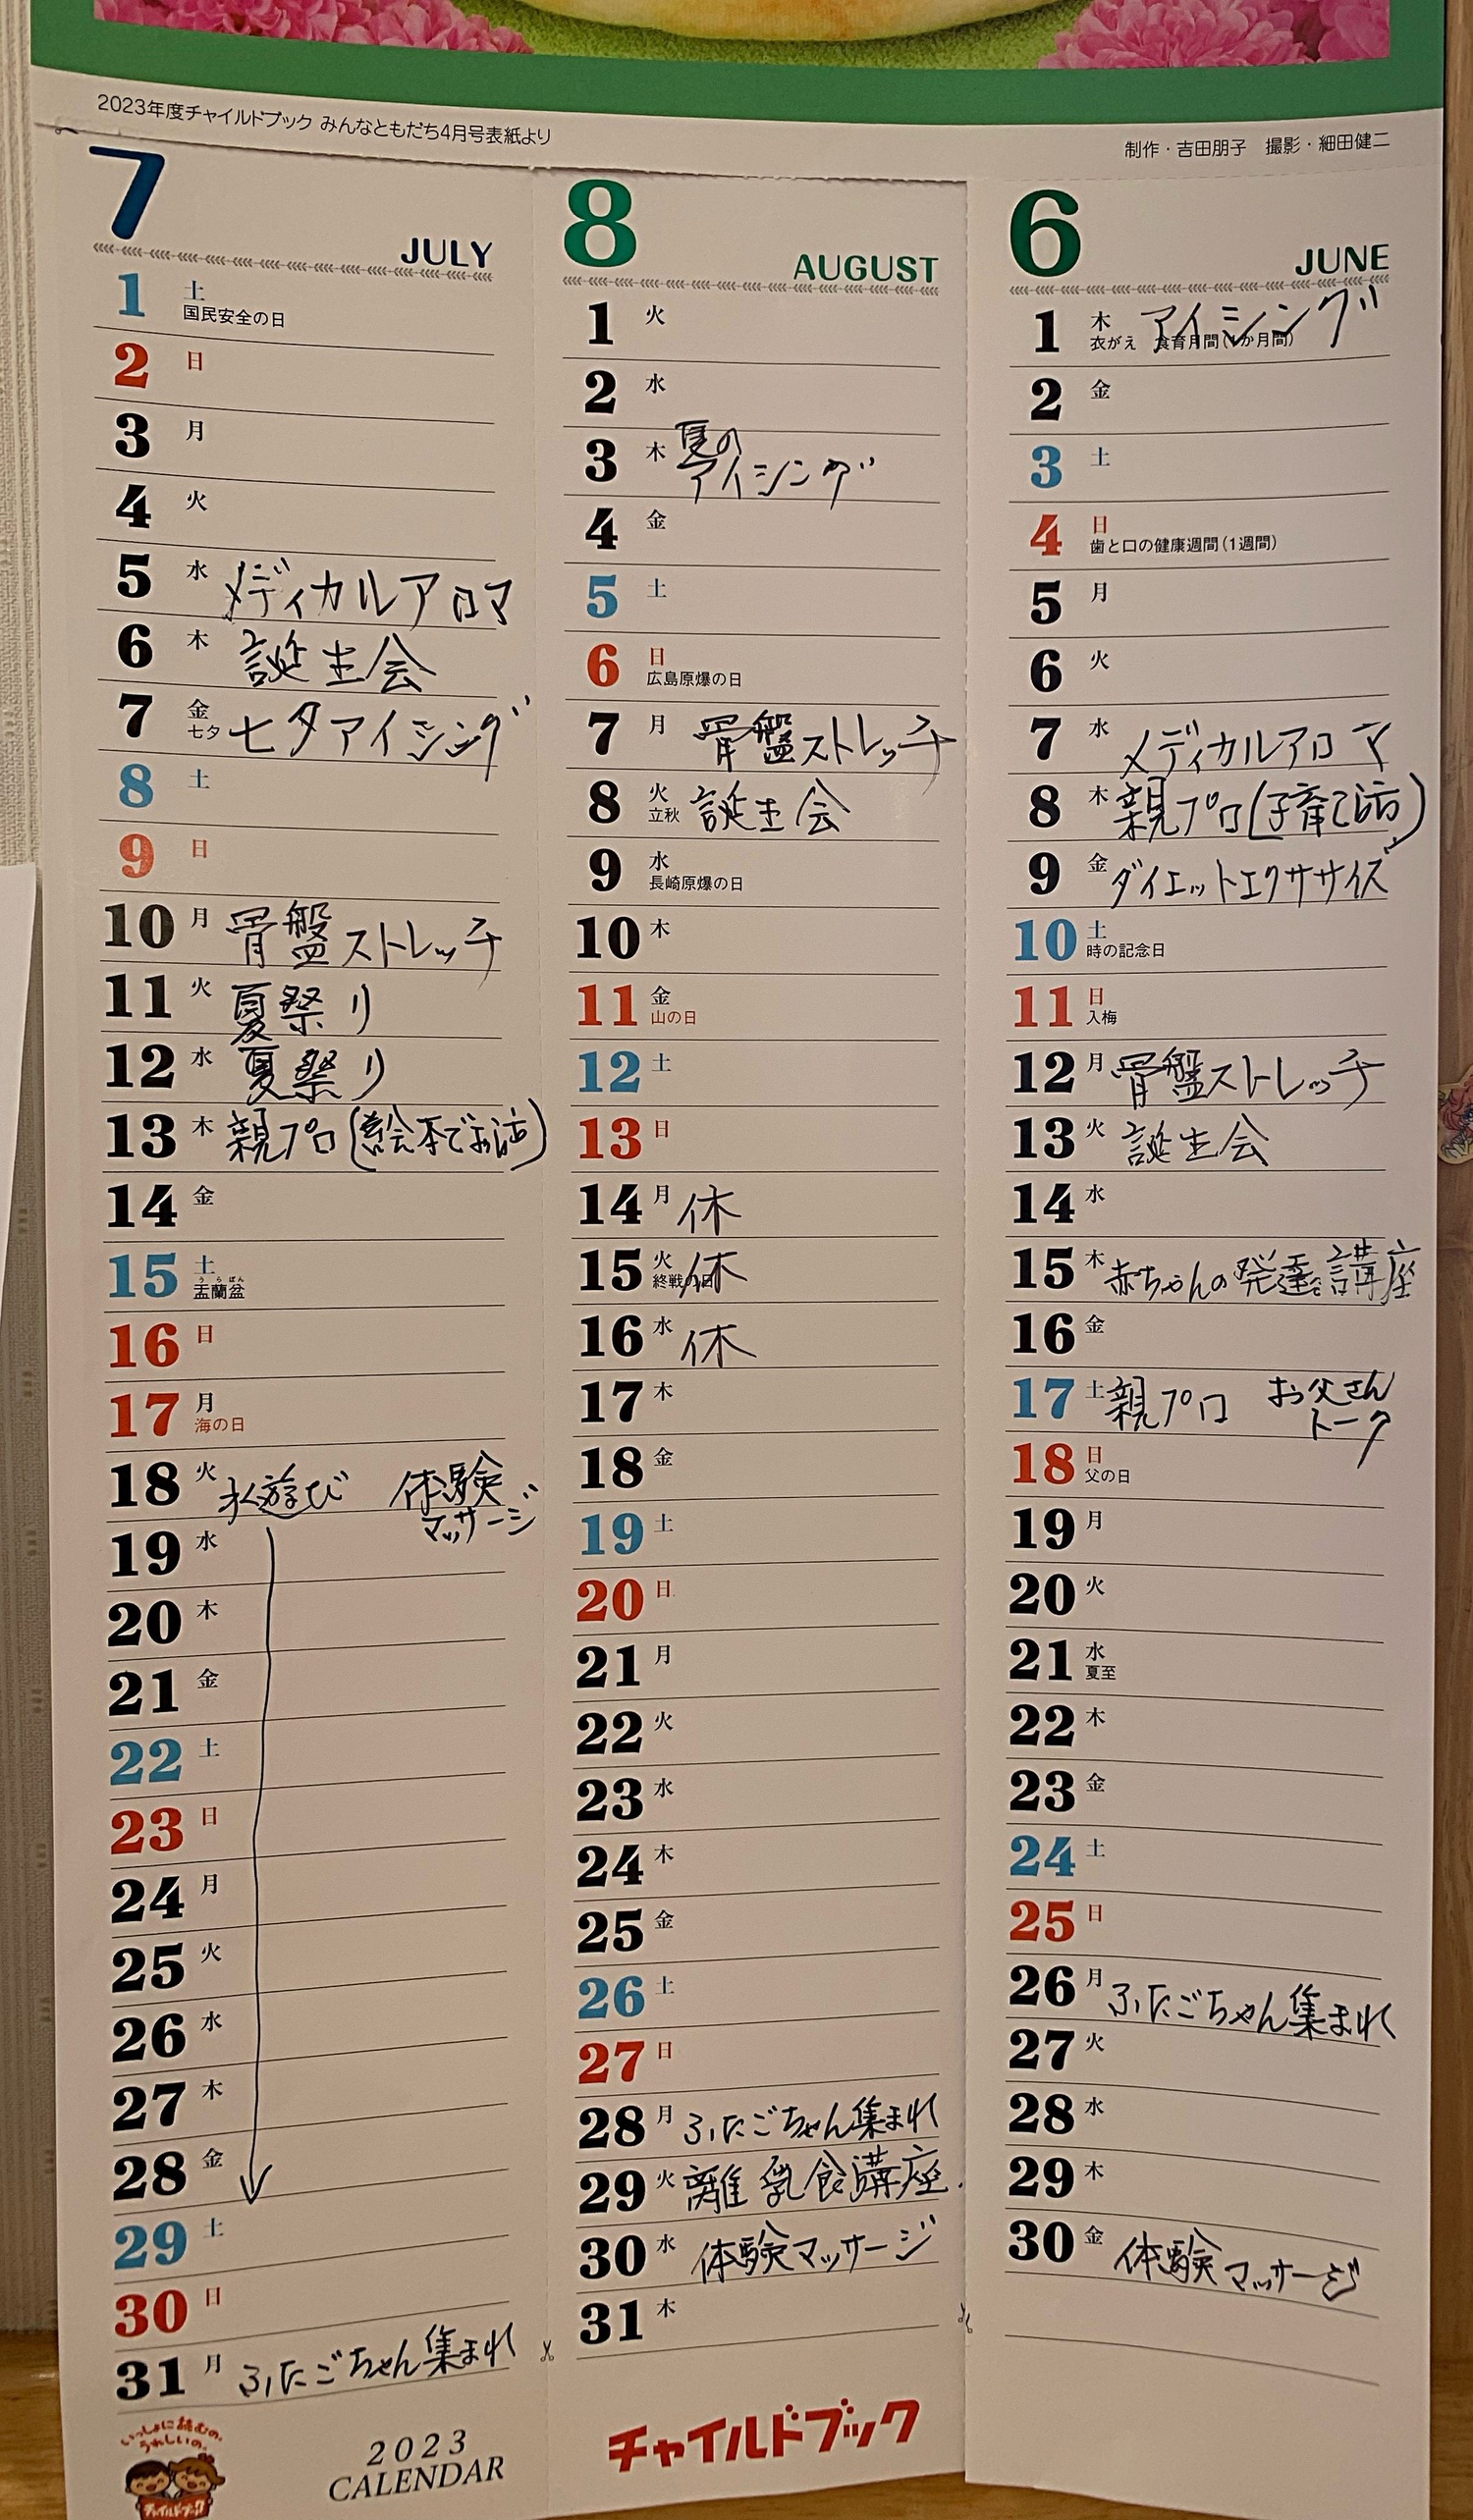 2023年度チャイルドブック みんなともだち4月号表紙より
制作・吉田朋子　撮影・細田健二
7 JULY
1 土 国民安全の日
2 日
3 月
4 火
5 水 メディカルアロマ
6 木 誕生会
7 金 七夕 七夕アイシング
8 土
9 日
10 月 骨盤ストレッチ
11 火 夏祭り
12 水 夏祭り
13 木 親プロ(絵本でお話)
14 金
15 土 盂蘭盆 うらぼん
16 日
17 月 海の日
18 火 水遊び 体験
マッサージ
19 水
20 木
21 金
22 土
23 日
24 月
25 火
26 水
27 木
28 金
29 土
30 日
31 月 ふたごちゃん集まれ
いっしょに読むの、
うれしいの。
チャイルドブック
2023
CALENDAR
8 AUGUST
1 火
2 水
3 木 夏の
アイシング
4 金
5 土
6 日 広島原爆の日
7 月 骨盤ストレッチ
8 火 立秋 誕生会
9 水 長崎原爆の日
10 木
11 金 山の日
12 土
13 日
14 月 休
15 火 終戦の日 休
16 水 休
17 木
18 金
19 土
20 日
21 月
22 火
23 水
24 木
25 金
26 土
27 日
28 月 ふたごちゃん集まれ
29 火 離乳食講座
30 水 体験マッサージ
31 木
チャイルドブック
6 JUNE
1 木 アイシング
衣がえ 食育月間(1か月間)
2 金
3 土
4 日 歯と口の健康週間(1週間)
5 月
6 火
7 水 メディカルアロマ
8 木 親プロ(子育て)
9 金 ダイエットエクササイズ
10 土 時の記念日
11 日 入梅
12 月 骨盤ストレッチ
13 火 誕生会
14 水
15 木 赤ちゃんの発達講座
16 金
17 土 親プロ お父さん
トーク
18 日 父の日
19 月
20 火
21 水 夏至
22 木
23 金
24 土
25 日
26 月 ふたごちゃん集まれ
27 火
28 水
29 木
30 金 体験マッサージ